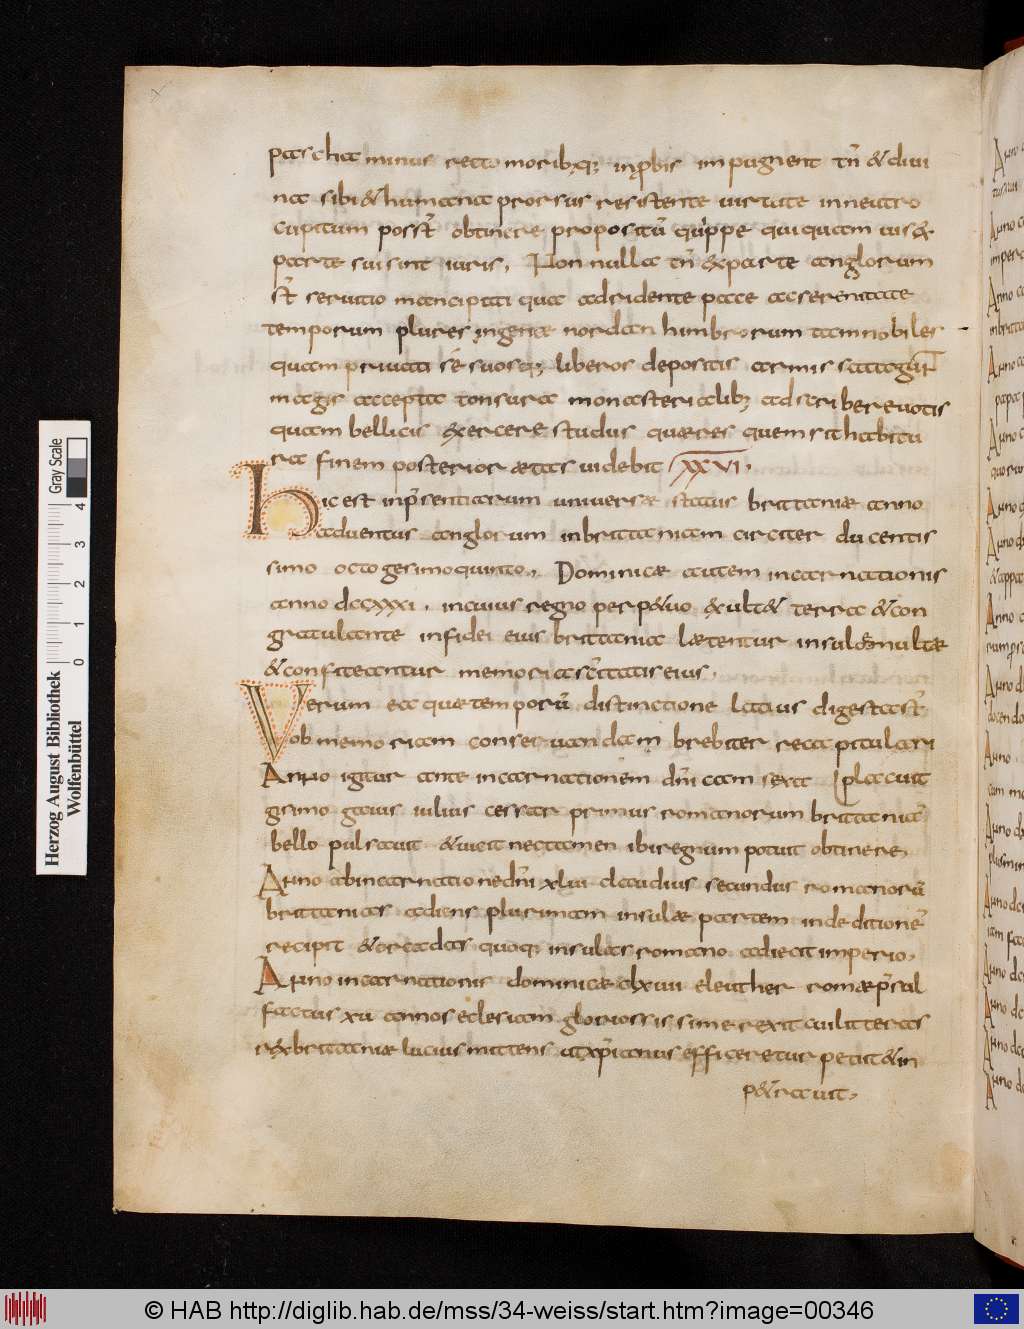 pascha minus recto moribusq; inprobis impugnent tn̄ & diui
na sibi & humana prorsus resistente uirtute in neutro
cupitum possт̄ obtinere propositū quippe qui quamuis ex
parte sui sint iuris. Non nulla tn̄ ex parte anglorum
st̄ seruitio mancipati qua adridente pace ac serenitate
temporum plures in gente nordan himbrorum tam nobiles
quam priuati sé suosq; liberos depositis armis satagūt
magis accepta tonsura monasterialib; adscribere uotis
quam bellicis exercere studiis quæ res quem sit habitu
ra finem posterior ætas uidebit XXVI.
Hic est inpr̄sentiarum uniuersæ status brittaniæ anno
aduentus anglorum in brittaniam circiter ducentis
simo octogesimo quinto. Dominicæ autem incarnationis
anno dccxxxi. in cuius regno perpetuo exultet terra & con
gratulante in fidei eius brittania lætentur insulæ multæ
& confiteantur memoria sc̄itatis eius.
Verum ea quæ temporū distinctione latius digesta st̄
ob memoriam conseruandam brebiter recapitulari
Anno igitur ante incarnationem dn̄icam sexa placuit
gesimo gaius iulius cessar primus romanorum brittanias
bello pulsauit & uicit nec tamen ibi regnum potuit obtinere.
Anno ab incarnatione dn̄i xlui claudius secundus romanorū
brittanias adiens plurimam insulæ partem in deditionē
recipit & orcadas quoq; insulas romano adiecit imperio.
Anno incarnationis dominicæ clxuii eleuther romæ pr̄sul
factus xu annos eclesiam gloriossissime rexit cui litteras
rex brittaniæ lucius mittens ut xp̄ianus efficeretur petiit & in
petrauit.
Herzog August Bibliothek
Wolfenbüttel
Gray Scale
0 1 2 3 4
© HAB http://diglib.hab.de/mss/34-weiss/start.htm?image=00346